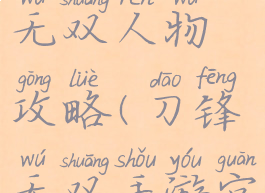 wú shuāng rén wù
无双人物
gōng lüè dāo fēng
攻略(刀锋
wú shuāng shǒu yóu guān
无双手游官